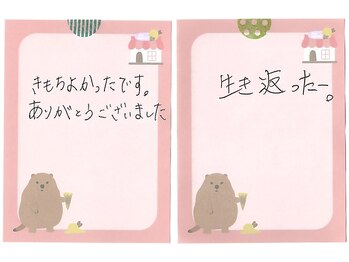 きもちよかったです。
ありがとうございました
生き返ったー。